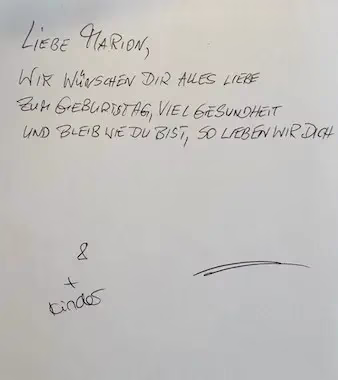 LIEBE MARION,
WIR WÜNSCHEN DIR ALLES LIEBE
ZUM GEBURTSTAG, VIEL GESUNDHEIT
UND BLEIB WIE DU BIST, SO LIEBEN WIR DICH
&
+
Kinder